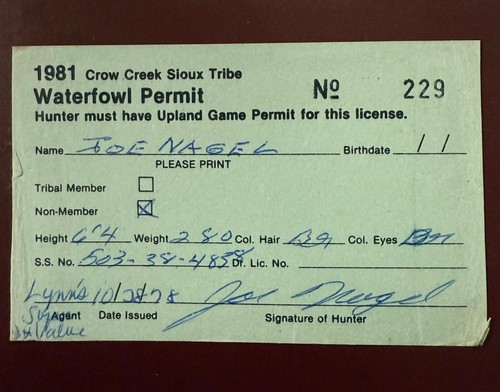 1981 Crow Creek Sioux Tribe
Waterfowl Permit Nº 229
Hunter must have Upland Game Permit for this license.
Name JOE NAGEL Birthdate / /
PLEASE PRINT
Tribal Member
Non-Member
Height 6'4 Weight 280 Col. Hair Col. Eyes
S.S. No. Dr. Lic. No.
Lynn's 10/28/78 Joe Nagel
Agent Date Issued Signature of Hunter
Value